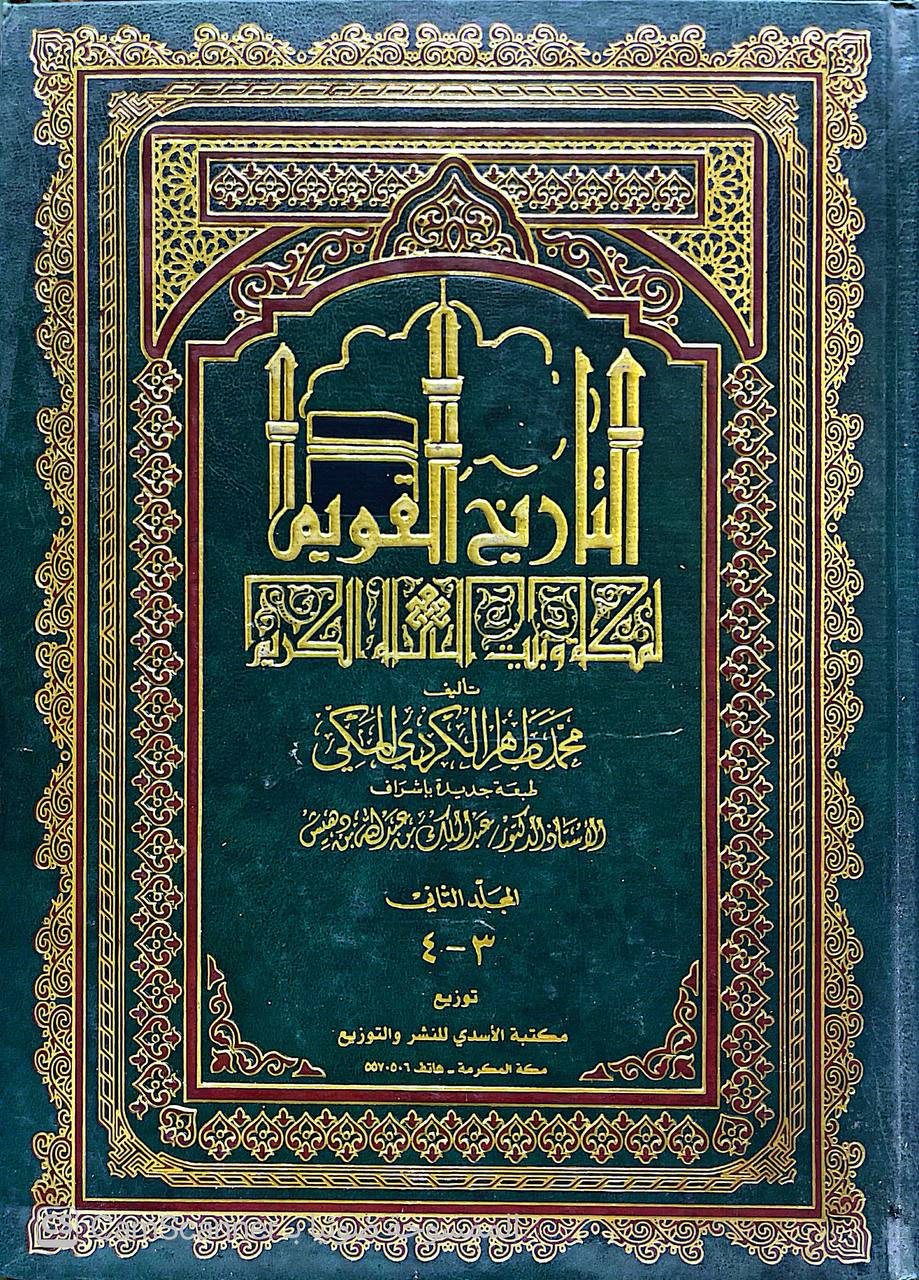 التاريخ القويم
لمكة وبيت الله الكريم
تأليف
محمد طاهر الكردي المكي
طبعة جديدة بإشراف
الأستاذ الدكتور/ عبد الملك بن عبد الله بن دهيش
المجلد الثاني
٣ - ٤
توزيع
مكتبة الأسدي للنشر والتوزيع
مكة المكرمة - هاتف ٥٥٧٠٥٠٦
الممسوحة ضوئيا بـ CamScanner